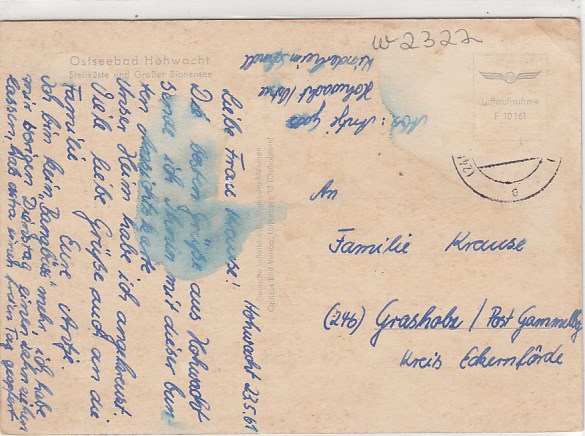 w 2322
Ostseebad Hohwacht
Steilküste und Großer Binnensee
Luftaufnahme
F 10161
Abs.: Antje
Hohwacht
Kinderheim
Hohwacht 23.5.61
Liebe Frau Krause!
Die besten Grüße aus Hohwacht
sende ich Ihnen mit dieser bun-
ten Ansichtskarte.
Unser Heim habe ich angekreuzt.
Viele liebe Grüße auch an die
Familie Eure Antje.
Ich bin kein "Barabas" mehr, ich habe
mir vorigen Dienstag einen Zahn ziehen
lassen, hab extra einen freien Tag geopfert
An
Familie Krause
(24b) Grasholz / Post Gammelby
Kreis Eckernförde